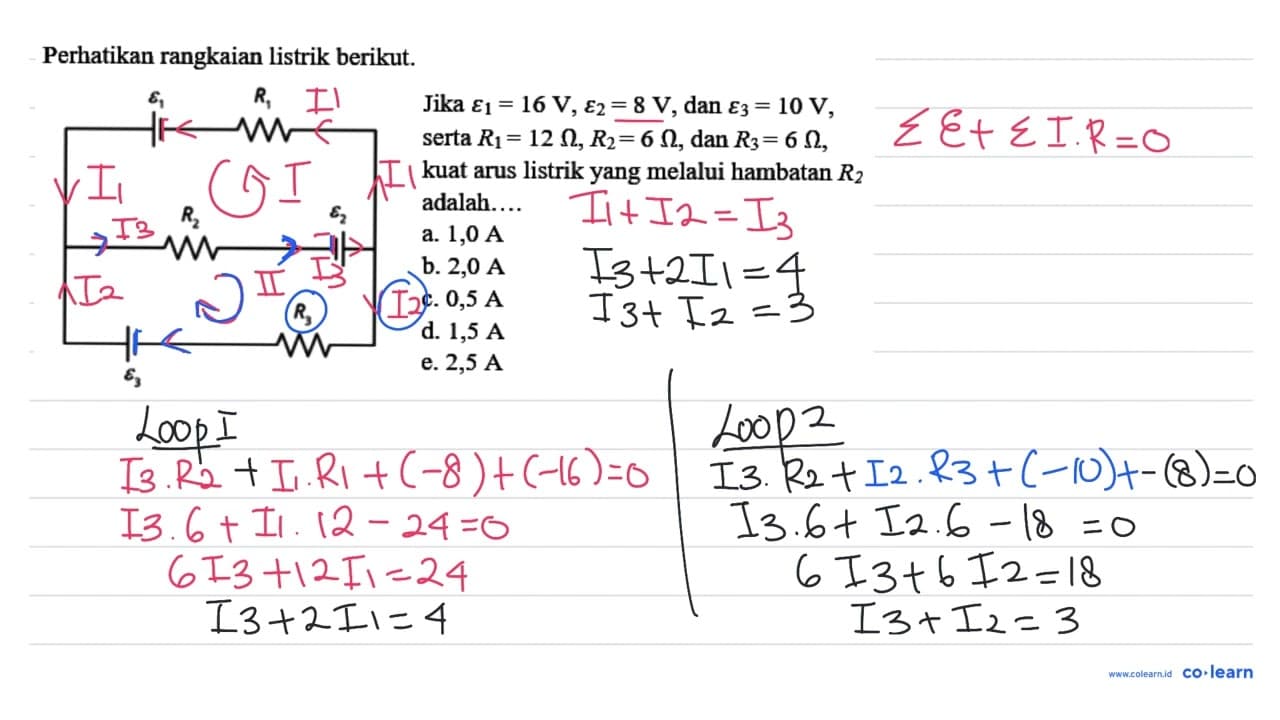 Perhatikan rangkaian listrik berikut.
ε₁ R₁ I1
Jika ε₁ = 16 V, ε₂ = 8 V, dan ε₃ = 10 V,
serta R₁ = 12 Ω, R₂ = 6 Ω, dan R₃ = 6 Ω,
kuat arus listrik yang melalui hambatan R₂
adalah....
a. 1,0 A
b. 2,0 A
c. 0,5 A
d. 1,5 A
e. 2,5 A
I₁ I I1
R₂ ε₂
I3
I2 II I3 I2
R₃
ε₃
Σ Ɛ + Σ I.R = 0
I1 + I2 = I3
I3 + 2I1 = 4
I3 + I2 = 3
Loop I
I3.R2 + I1.R1 + (-8) + (-16) = 0
I3.6 + I1.12 - 24 = 0
6I3 + 12I1 = 24
I3 + 2I1 = 4
Loop 2
I3.R2 + I2.R3 + (-10) + -(8) = 0
I3.6 + I2.6 - 18 = 0
6I3 + 6I2 = 18
I3 + I2 = 3
www.colearn.id co·learn